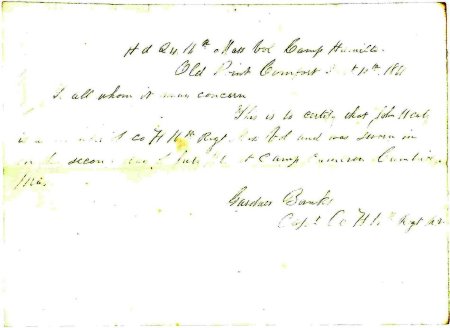 Hd Qrs 16th Mass Vol Camp Hamilton
Old Point Comfort Sept 10th 1861
To all whom it may concern
This is to certify that John
is a member of Co H 16th Regt Mass Vol and was sworn in
on the second day of July at Camp Cameron
Mass
Gardner Banks
Capt Co H 16th Regt